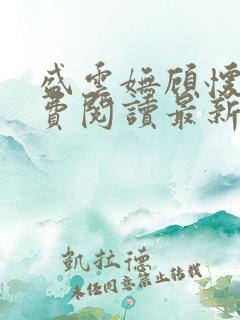 盛雲嫵顧懷
費閱讀最新
凱拉德
未經同意禁止轉載